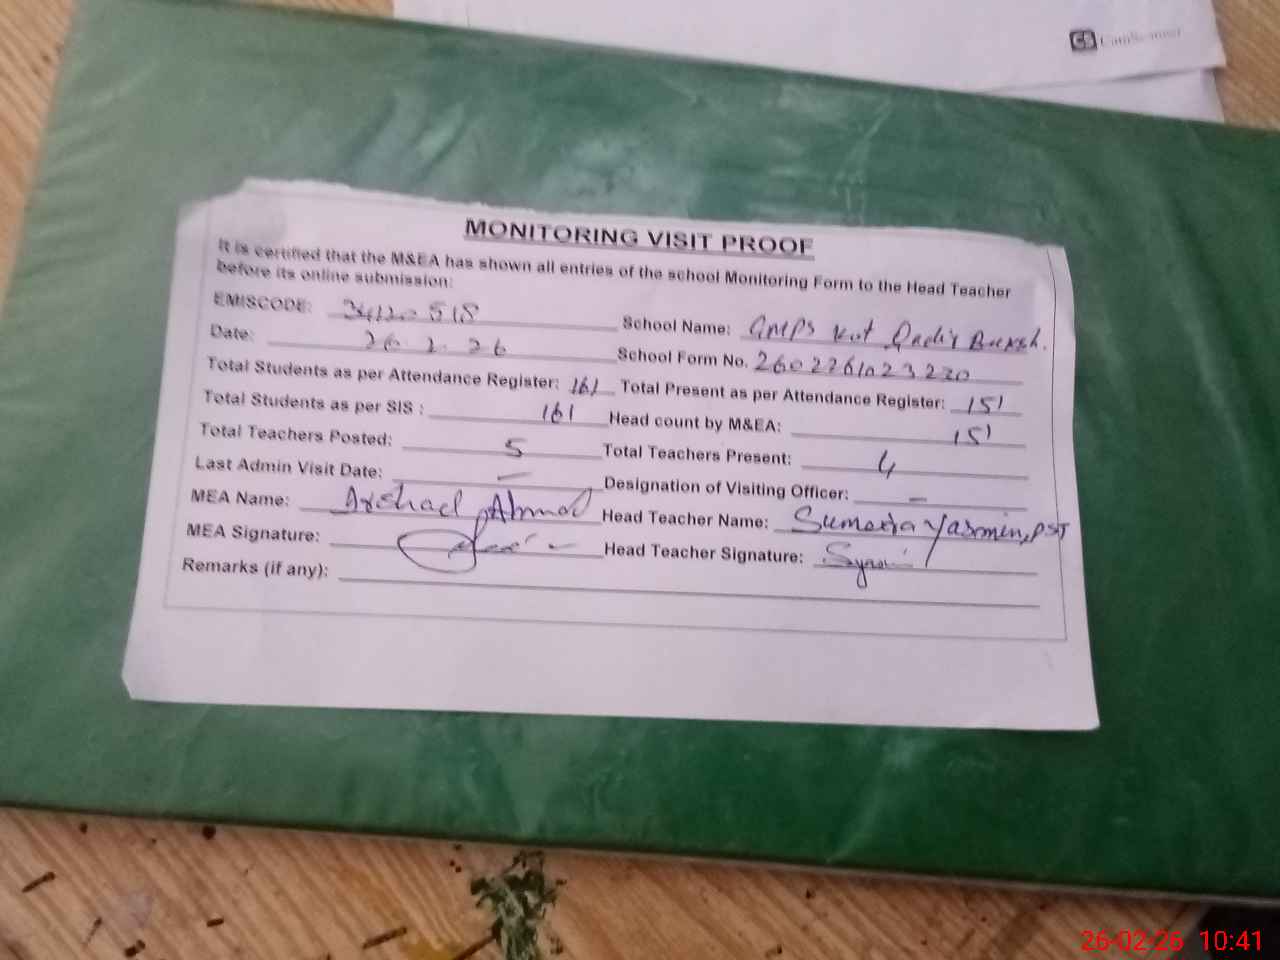 CamScanner
MONITORING VISIT PROOF
It is certified that the M&EA has shown all entries of the school Monitoring Form to the Head Teacher
before its online submission:
EMISCODE: 518 School Name: GMPS Kot Qadir Buksh.
Date: 26.2.26 School Form No. 2602261023220
Total Students as per Attendance Register: 161 Total Present as per Attendance Register: 151
Total Students as per SIS : 161 Head count by M&EA: 151
Total Teachers Posted: 5 Total Teachers Present: 4
Last Admin Visit Date: — Designation of Visiting Officer: —
MEA Name: Arshad Ahmad Head Teacher Name: Yasmin, PST
MEA Signature: Head Teacher Signature:
Remarks (if any):
26-02-26 10:41